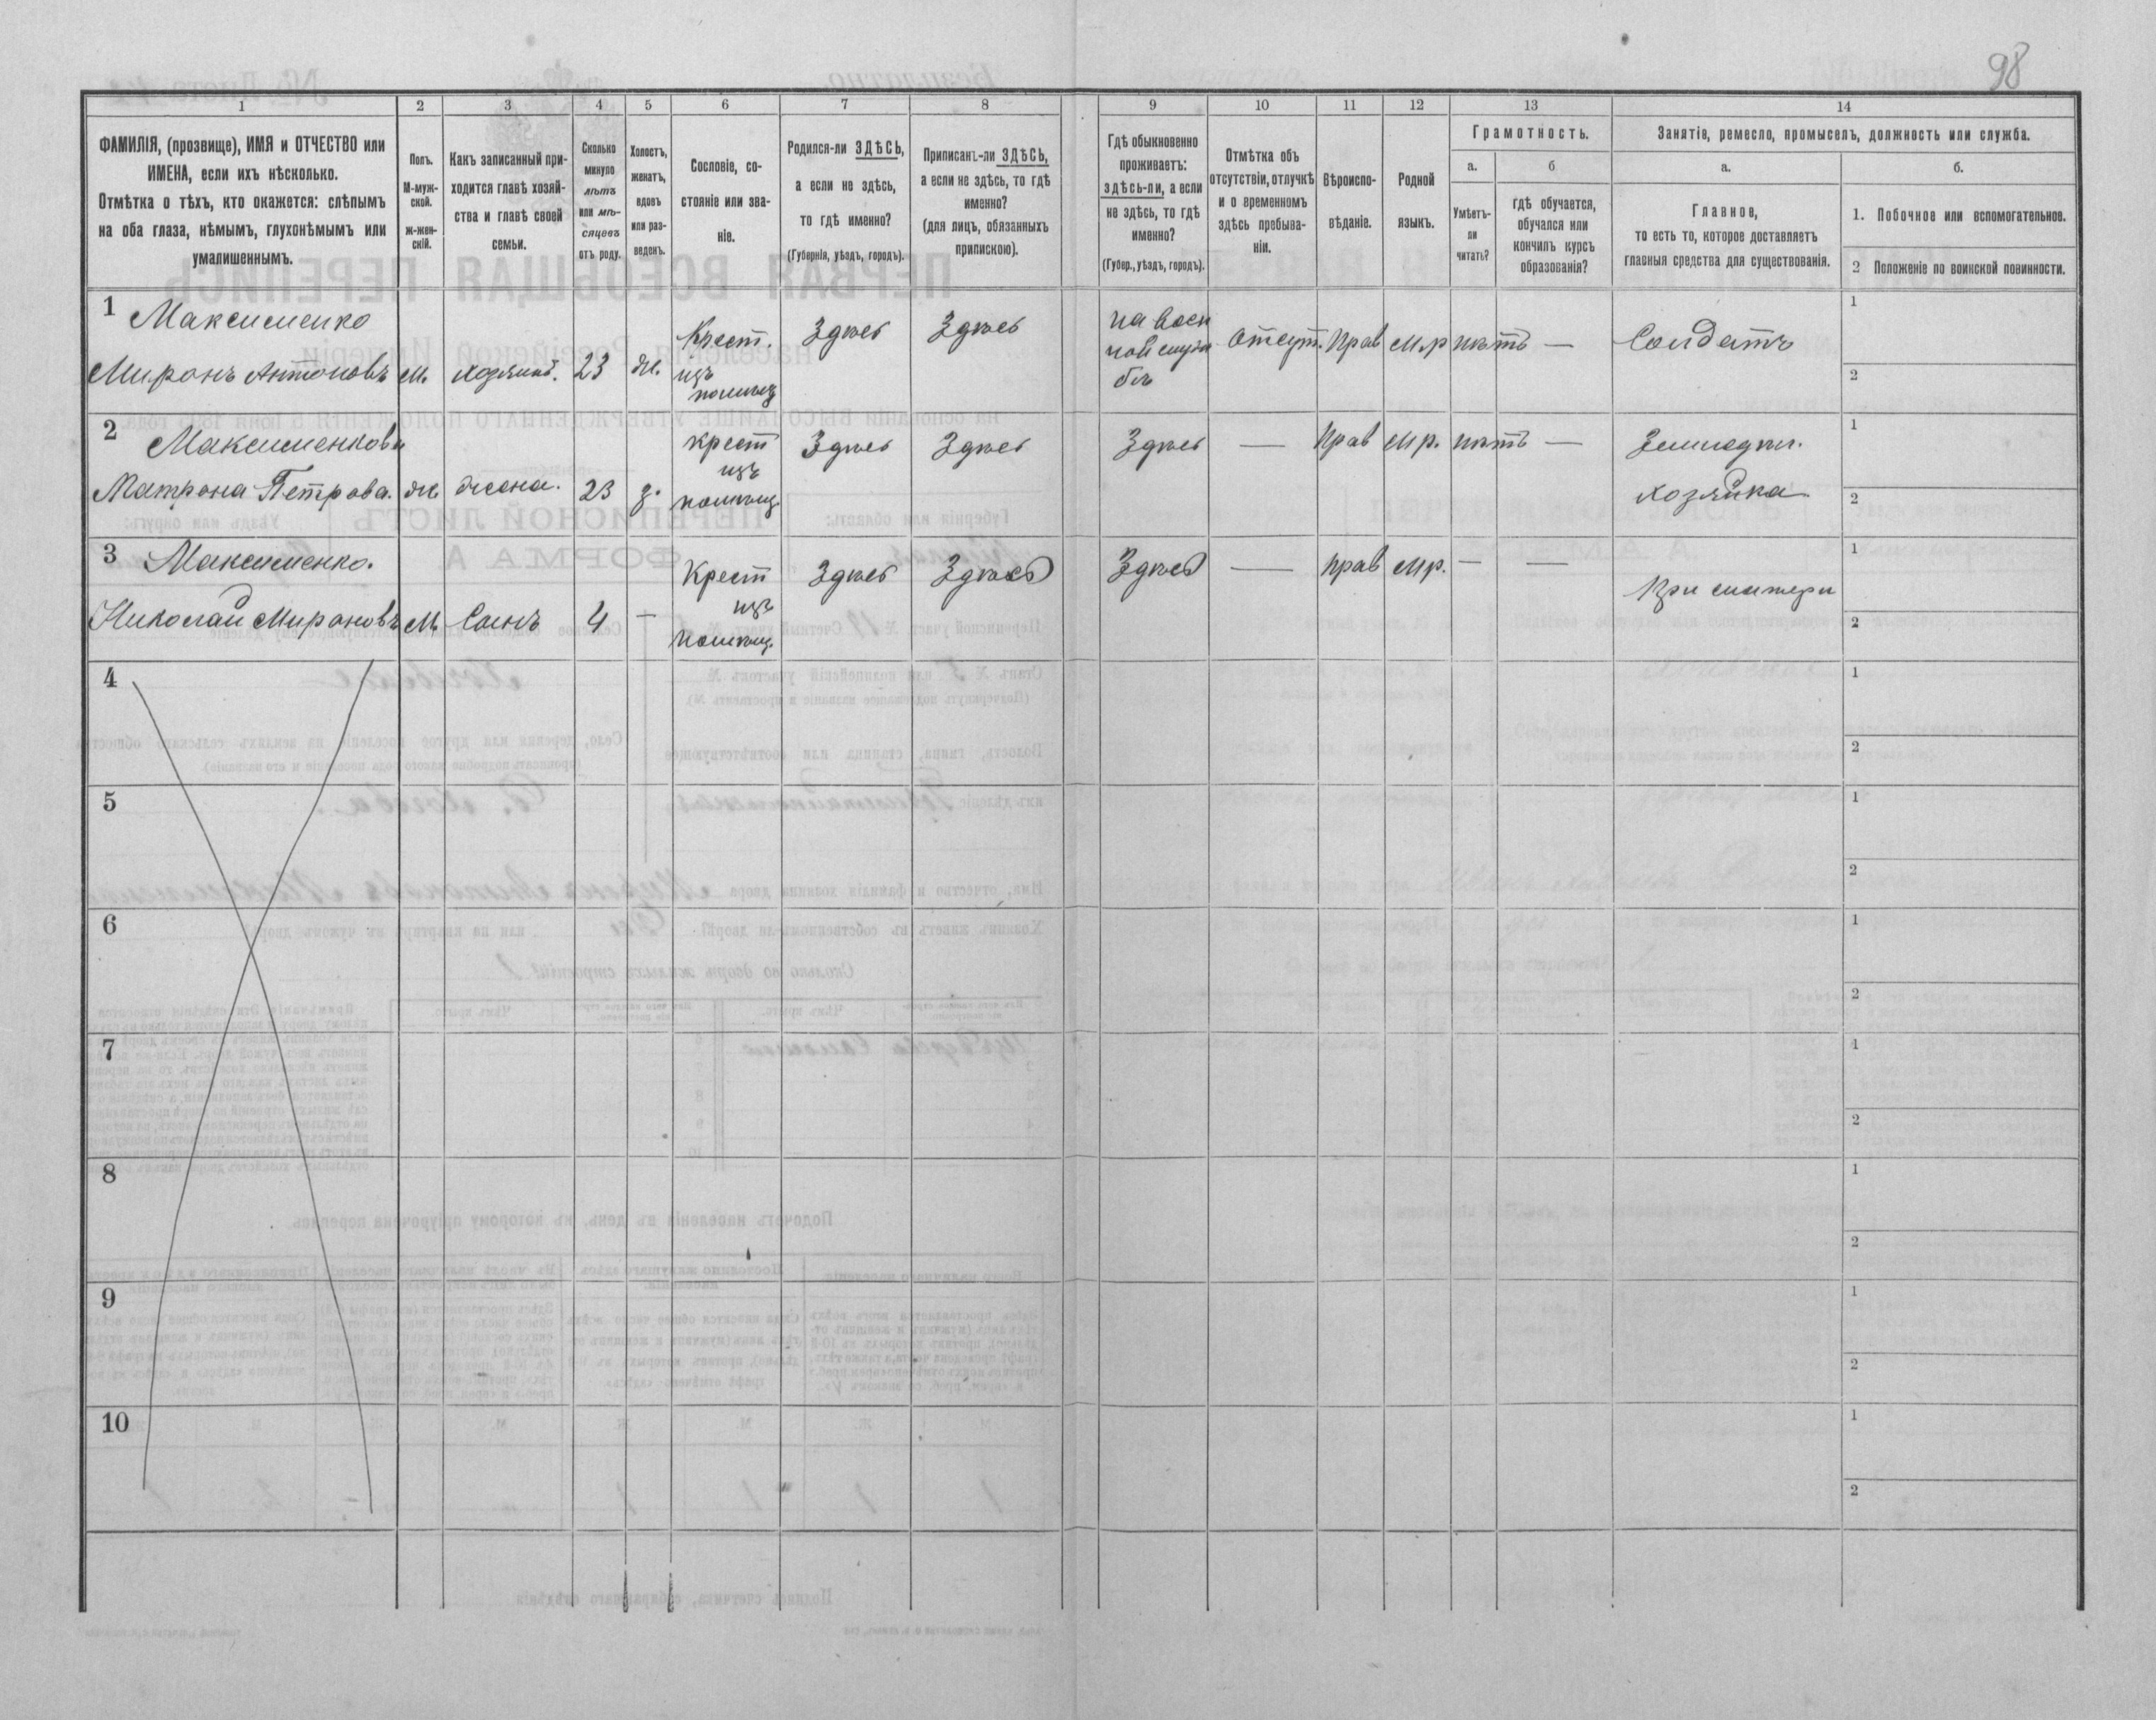 98
1 2 3 4 5 6 7 8 9 10 11 12 13 14
ФАМИЛІЯ, (прозвище), ИМЯ и ОТЧЕСТВО или
ИМЕНА, если ихъ нѣсколько.
Отмѣтка о тѣхъ, кто окажется: слѣпымъ
на оба глаза, нѣмымъ, глухонѣмымъ или
умалишеннымъ.
Полъ.
М-муж-
ской.
ж-жен-
скій.
Какъ записанный при-
ходится главѣ хозяй-
ства и главѣ своей
семьи.
Сколько
минуло
лѣтъ
или мѣ-
сяцевъ
отъ роду.
Холостъ,
женатъ,
вдовъ
или раз-
веденъ.
Сословіе, со-
стояніе или зва-
ніе.
Родился-ли ЗДѢСЬ,
а если не здѣсь,
то гдѣ именно?
(Губернія, уѣздъ, городъ).
Приписанъ-ли ЗДѢСЬ,
а если не здѣсь, то гдѣ
именно?
(для лицъ, обязанныхъ
припискою).
Гдѣ обыкновенно
проживаетъ:
здѣсь-ли, а если
не здѣсь, то гдѣ
именно?
(Губер., уѣздъ, городъ).
Отмѣтка объ
отсутствіи, отлучкѣ
и о временномъ
здѣсь пребыва-
ніи.
Вѣроиспо-
вѣданіе.
Родной
языкъ.
Грамотность.
а.
Умѣетъ-
ли
читать?
б
гдѣ обучается,
обучался или
кончилъ курсъ
образованія?
Занятіе, ремесло, промыселъ, должность или служба.
а.
Главное,
то есть то, которое доставляетъ
главныя средства для существованія.
б.
1. Побочное или вспомогательное.
2 Положеніе по воинской повинности.
1 Максименко
Миронъ Антоновъ м. хозяинъ. 23 ж.
Крест.
изъ
помѣщ
Здѣсь Здѣсь
на воен
ной служ
бѣ
Отсут. Прав м.р нѣтъ — Солдатъ
1
2
2 Максименкова
Матрона Петрова. ж жена. 23 з.
крест
изъ
помѣщ.
Здѣсь Здѣсь Здѣсь — Прав мр. нѣтъ —
Земледѣл.
хозяйка
1
2
3 Максименко.
Николай Мироновъ М. Сынъ 4 —
Крест
изъ
помѣщ.
Здѣсь Здѣсь Здѣсь — прав мр. — —
При матери
1
2
4
1
2
5
1
2
6
1
2
7
1
2
8
1
2
9
1
2
10
1
2